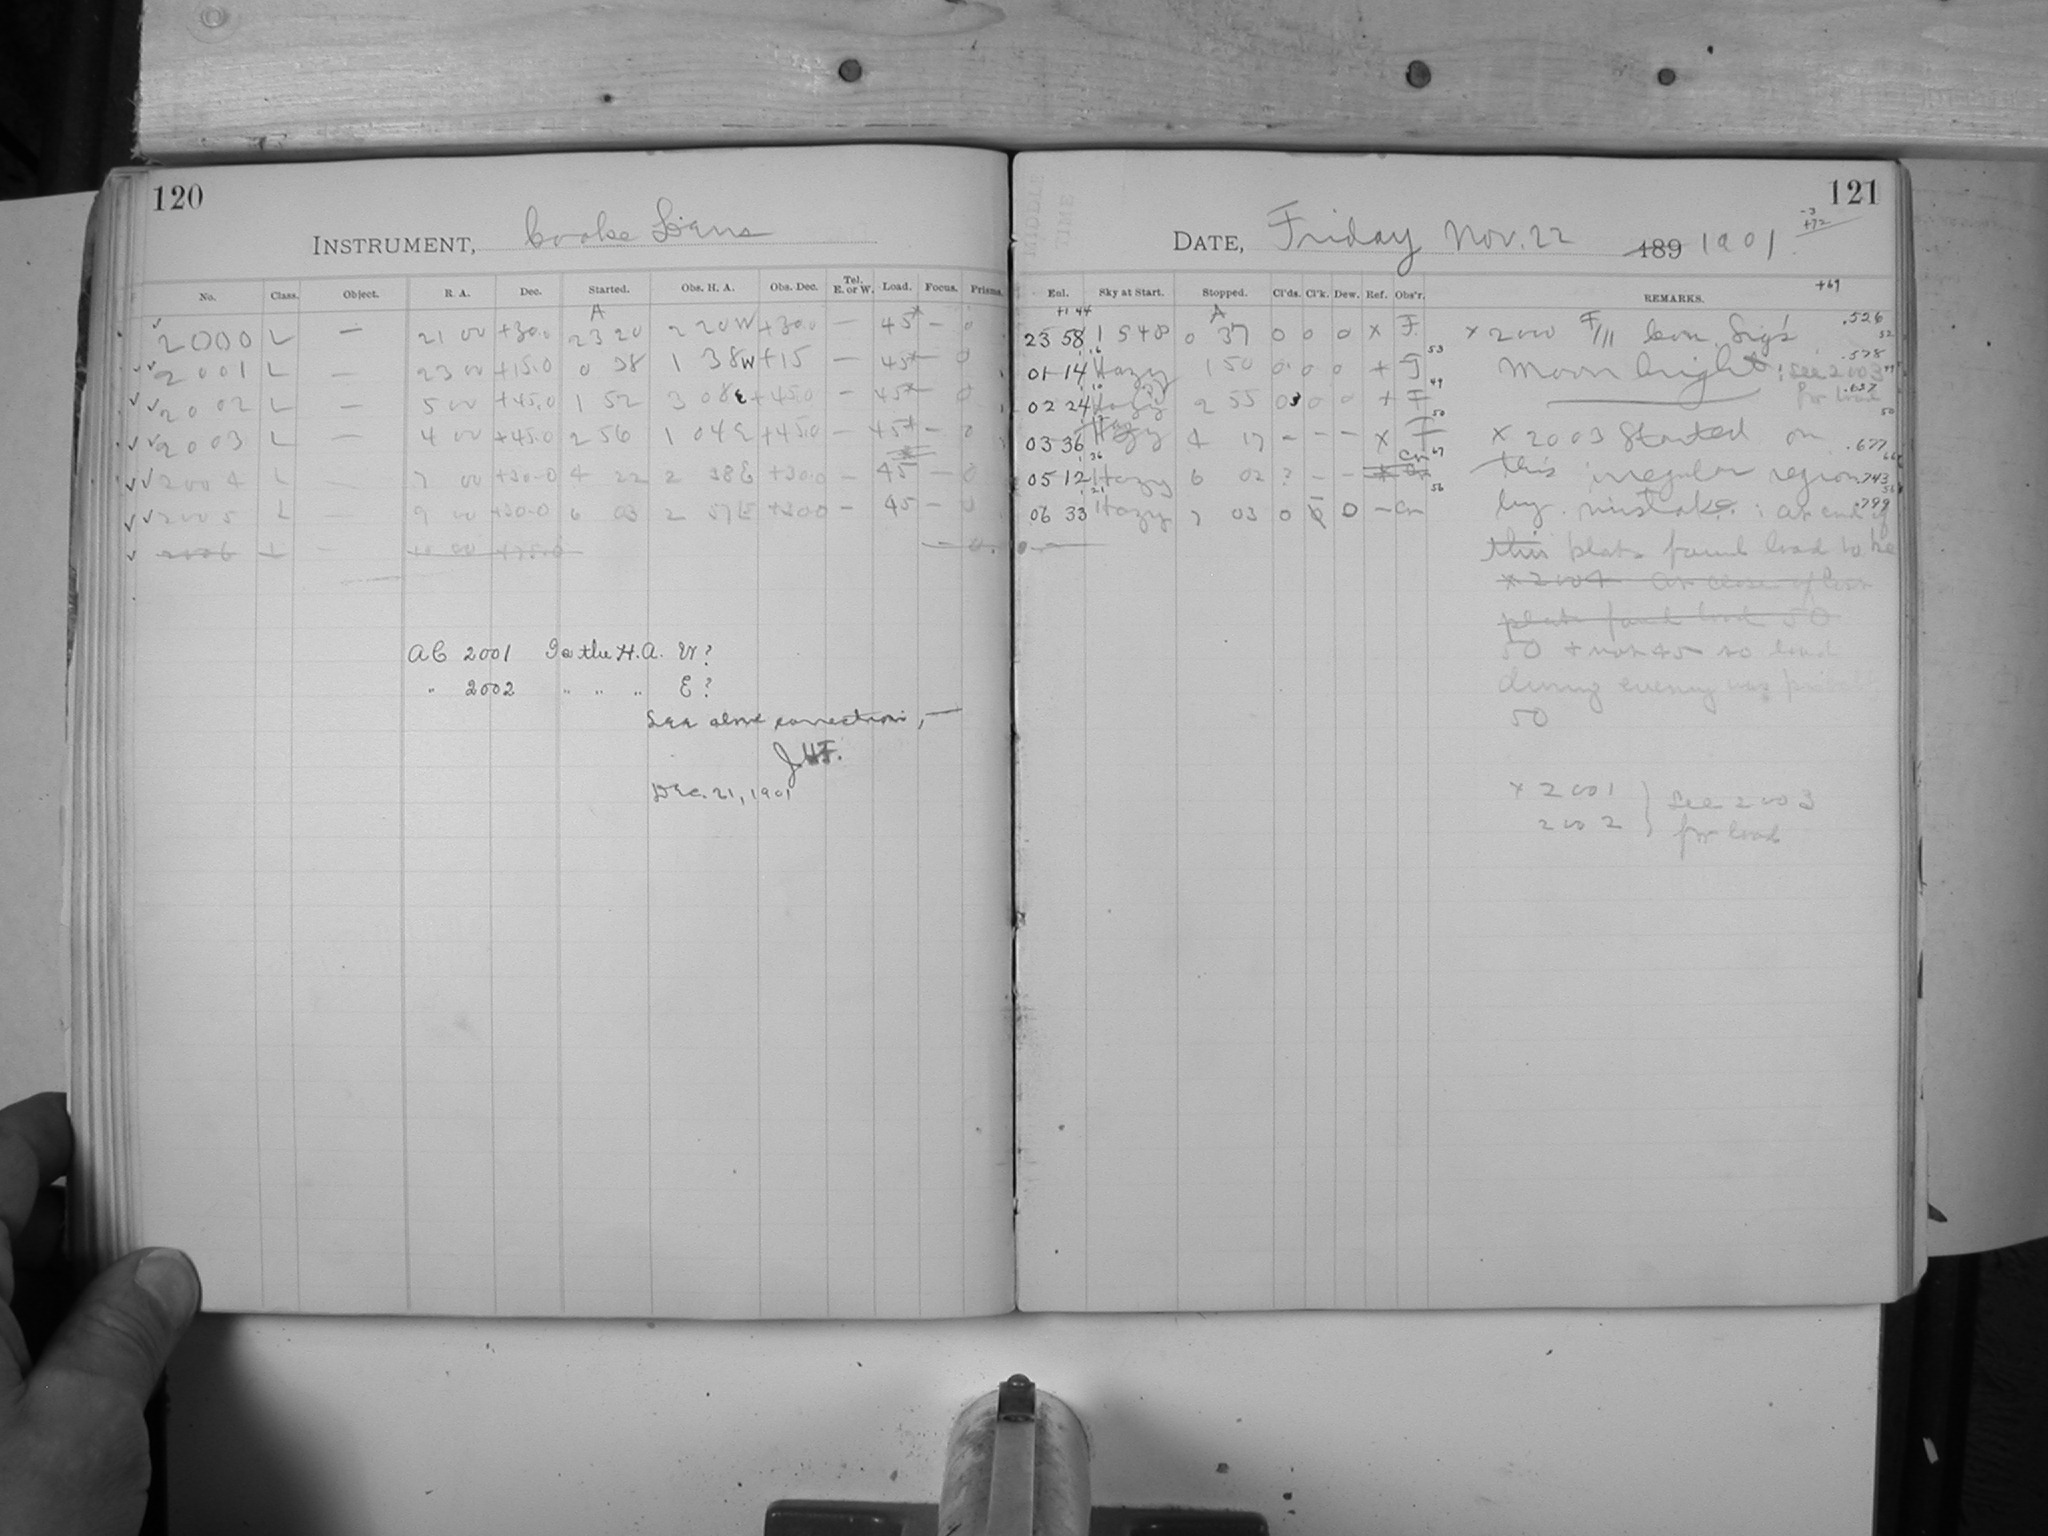 120
INSTRUMENT, Cooke Lens
No. Class. Object. R. A. Dec. Started. Obs. H. A. Obs. Dec. Tel. E. or W. Load. Focus. Prisms.
A
2000 L — 21 00 +30.0 23 20 2 20W +30.0 — 45* — 0
2001 L — 23 00 +15.0 0 38 1 38W +15 — 45* — 0
2002 L — 5 00 +45.0 1 52 3 08E +45.0 — 45* — 0
2003 L — 4 00 +45.0 2 56 1 04E +45.0 — 45* — 0
2004 L — 7 00 +30.0 4 22 2 38E +30.0 — 45 — 0
2005 L — 9 00 +30.0 6 03 2 57E +30.0 — 45 — 0
2006 L — 10 00 — 0.
AC 2001 Is the H.A. W?
" 2002 " " " E?
See above corrections, —
J.H.F.
Dec. 21, 1901
121
-3
+72
DATE, Friday Nov. 22 189 1901
+69
Enl. Sky at Start. Stopped. Cl'ds. Cl'k. Dew. Ref. Obs'r. REMARKS.
+1 44 A
23 58 1 548 0 37 0 0 0 x F. x 2000 F/11 Com. Sig's .526
52
01 14 Hazy 1 50 0 0 0 + F Moon bright: see 2003 .578
for load
02 24 Hazy 2 55 0 0 0 + F .627
03 36 Hazy 4 17 — — — x F x 2003 Started on .677
05 12 Hazy 6 02 ? — — Cn this irregular region .743
06 33 Hazy 7 03 0 0 0 — Cn by mistake. : at end of .799
this plate found load to be
x 2004 at close of
plate found load 50
50 + not 45 so load
during evening was probably
50
x 2001 } See 2003
2002 } for load